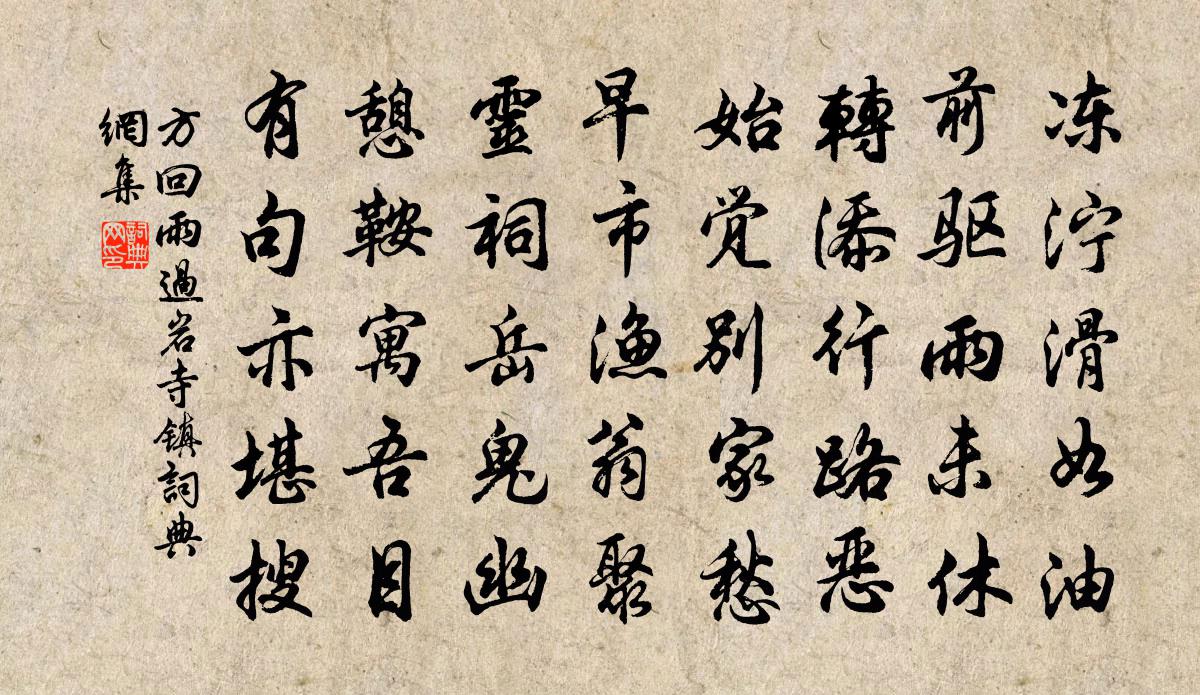 冻泞滑如油
前驱雨未休
轉添行路恶
始觉别家愁
早市渔翁聚
靈祠岳鬼幽
憩鞍寓吾目
有句亦堪搜
方回雨過岩寺镇詞典
網集
詞典
网印